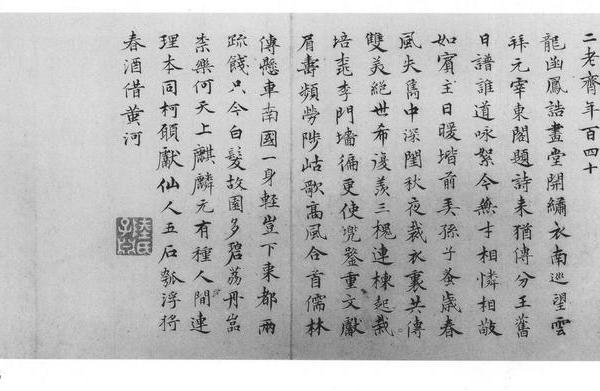 二老齊年百四十
龍函鳳誥畫堂開繡衣南巡望雲
拜元宰東閣題詩來猶傳分玉舊
日譜誰道咏絮今無士相憐相敬
如賓主日暖堦前弄孫子蚤歲春
風失雋中深閨秋夜裁衣裏共傳
雙美絕世希復羡三槐連棟起栽
培桃李門墻徧更使兜鍪重文獻
眉壽頻勞陟岵歌高風合首儒林
傳懸車南國一身輕豈下東都兩
疏餞只今白髮故園多碧荔丹嵓
柰樂何天上麒麟元有種人間連
理本同柯願獻仙人五石瓠浮將
春酒借黃河